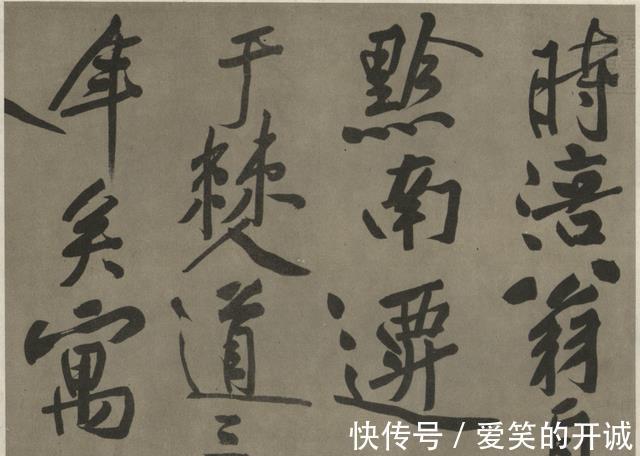 時涪翁自
黔南遷
于僰道三
年矣寓
快传号 / 爱笑的开诚